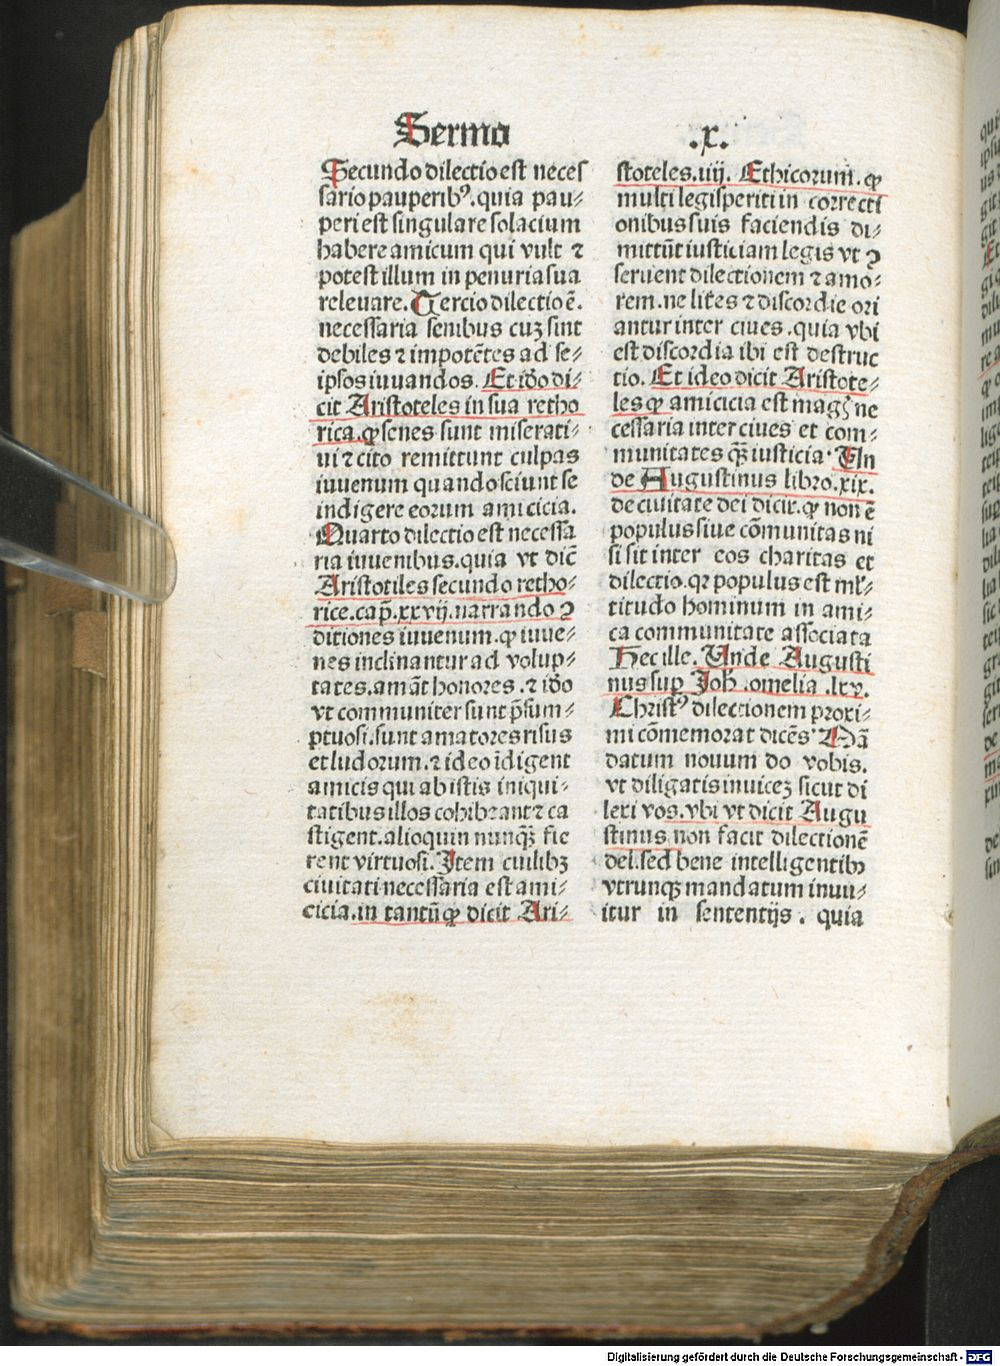 Sermo .x.
Secundo dilectio est neces
sario pauperibꝰ. quia pau⸗
peri est singulare solacium
habere amicum qui vult ⁊
potest illum in penuria sua
releuare. Tercio dilectio ē.
necessaria senibus cuꝫ sint
debiles ⁊ impotētes ad se⸗
ipsos iuuandos. Et iđo di⸗
cit Aristoteles in sua retho
rica. ꝙ senes sunt miserati⸗
ui ⁊ cito remittunt culpas
iuuenum quando sciunt se
indigere eorum amicicia.
Quarto dilectio est necessa
ria iuuenibus. quia vt dic̄
Aristotiles secundo retho⸗
rice. cap̄. xxvij. narrando ꝯ
ditiones iuuenum. ꝙ iuue⸗
nes inclinantur ad volup⸗
tates. amāt honores. ⁊ iđo
vt communiter sunt p̄sum⸗
ptuosi. sunt amatores risus
et ludorum. ⁊ ideo īdigent
amicis qui ab istis iniqui⸗
tatibus illos cohibeant ⁊ ca
stigent. alioquin nunqꝫ̄ fie
rent virtuosi. Item cuilibꝫ
ciuitati necessaria est ami⸗
cicia. in tantū ꝙ dicit Ari⸗
stoteles. iiij. Ethicorum. ꝙ
multi legisperiti in correcti
onibus suis faciendis di⸗
mittūt iusticiam legis vt ꝯ
seruent dilectionem ⁊ amo⸗
rem. ne lites ⁊ discordie ori
antur inter ciues. quia vbi
est discordia ibi est destruc
tio. Et ideo dicit Aristote⸗
les ꝙ amicicia est mag̕ ne
cessaria inter ciues et com⸗
munitates qꝫ̄ iusticia. Un
de Augustinus libro. xix.
de ciuitate dei dicit. ꝙ non ē
populus siue cōmunitas ni
si sit inter eos charitas et
dilectio. qꝛ populus est ml̕⸗
titudo hominum in ami⸗
ca communitate associata
Hec ille. Unde Augusti
nus suꝑ Joh̄. omelia. lxv.
Christꝰ dilectionem proxi⸗
mi cōmemorat dicēs. Mā
datum nouum do vobis.
vt diligatis inuiceꝫ sicut di
lexi vos. vbi vt dicit Augu
stinus non facit dilectionē
dei. sed bene intelligentibꝫ
vtrunqꝫ mandatum inuu⸗
itur in sententijs. quia
Digitalisierung gefördert durch die Deutsche Forschungsgemeinschaft - DFG